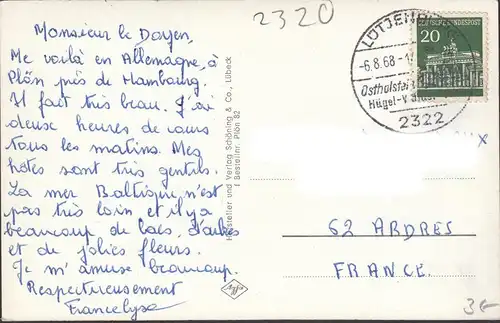 Monsieur le Doyen,
Me voilà en Allemagne, à
Plön près de Hambourg.
Il fait très beau. J'ai
deuse heures de cours
tous les matins. Mes
hôtes sont très gentils.
La mer Baltique n'est
pas très loin et il y a
beaucoup de lacs, d'arbres
et de jolies fleurs.
Je m'amuse beaucoup.
Respectueusement
Francelyse
Hersteller und Verlag Schöning & Co., Lübeck
Bestellnr. Plön 82
Agfa
2320
LÜTJENBURG
-6.8.68-1
Ostholstein
Hügel-
2322
DEUTSCHE BUNDESPOST
20
x
62 ARDRES
FRANCE.
3€